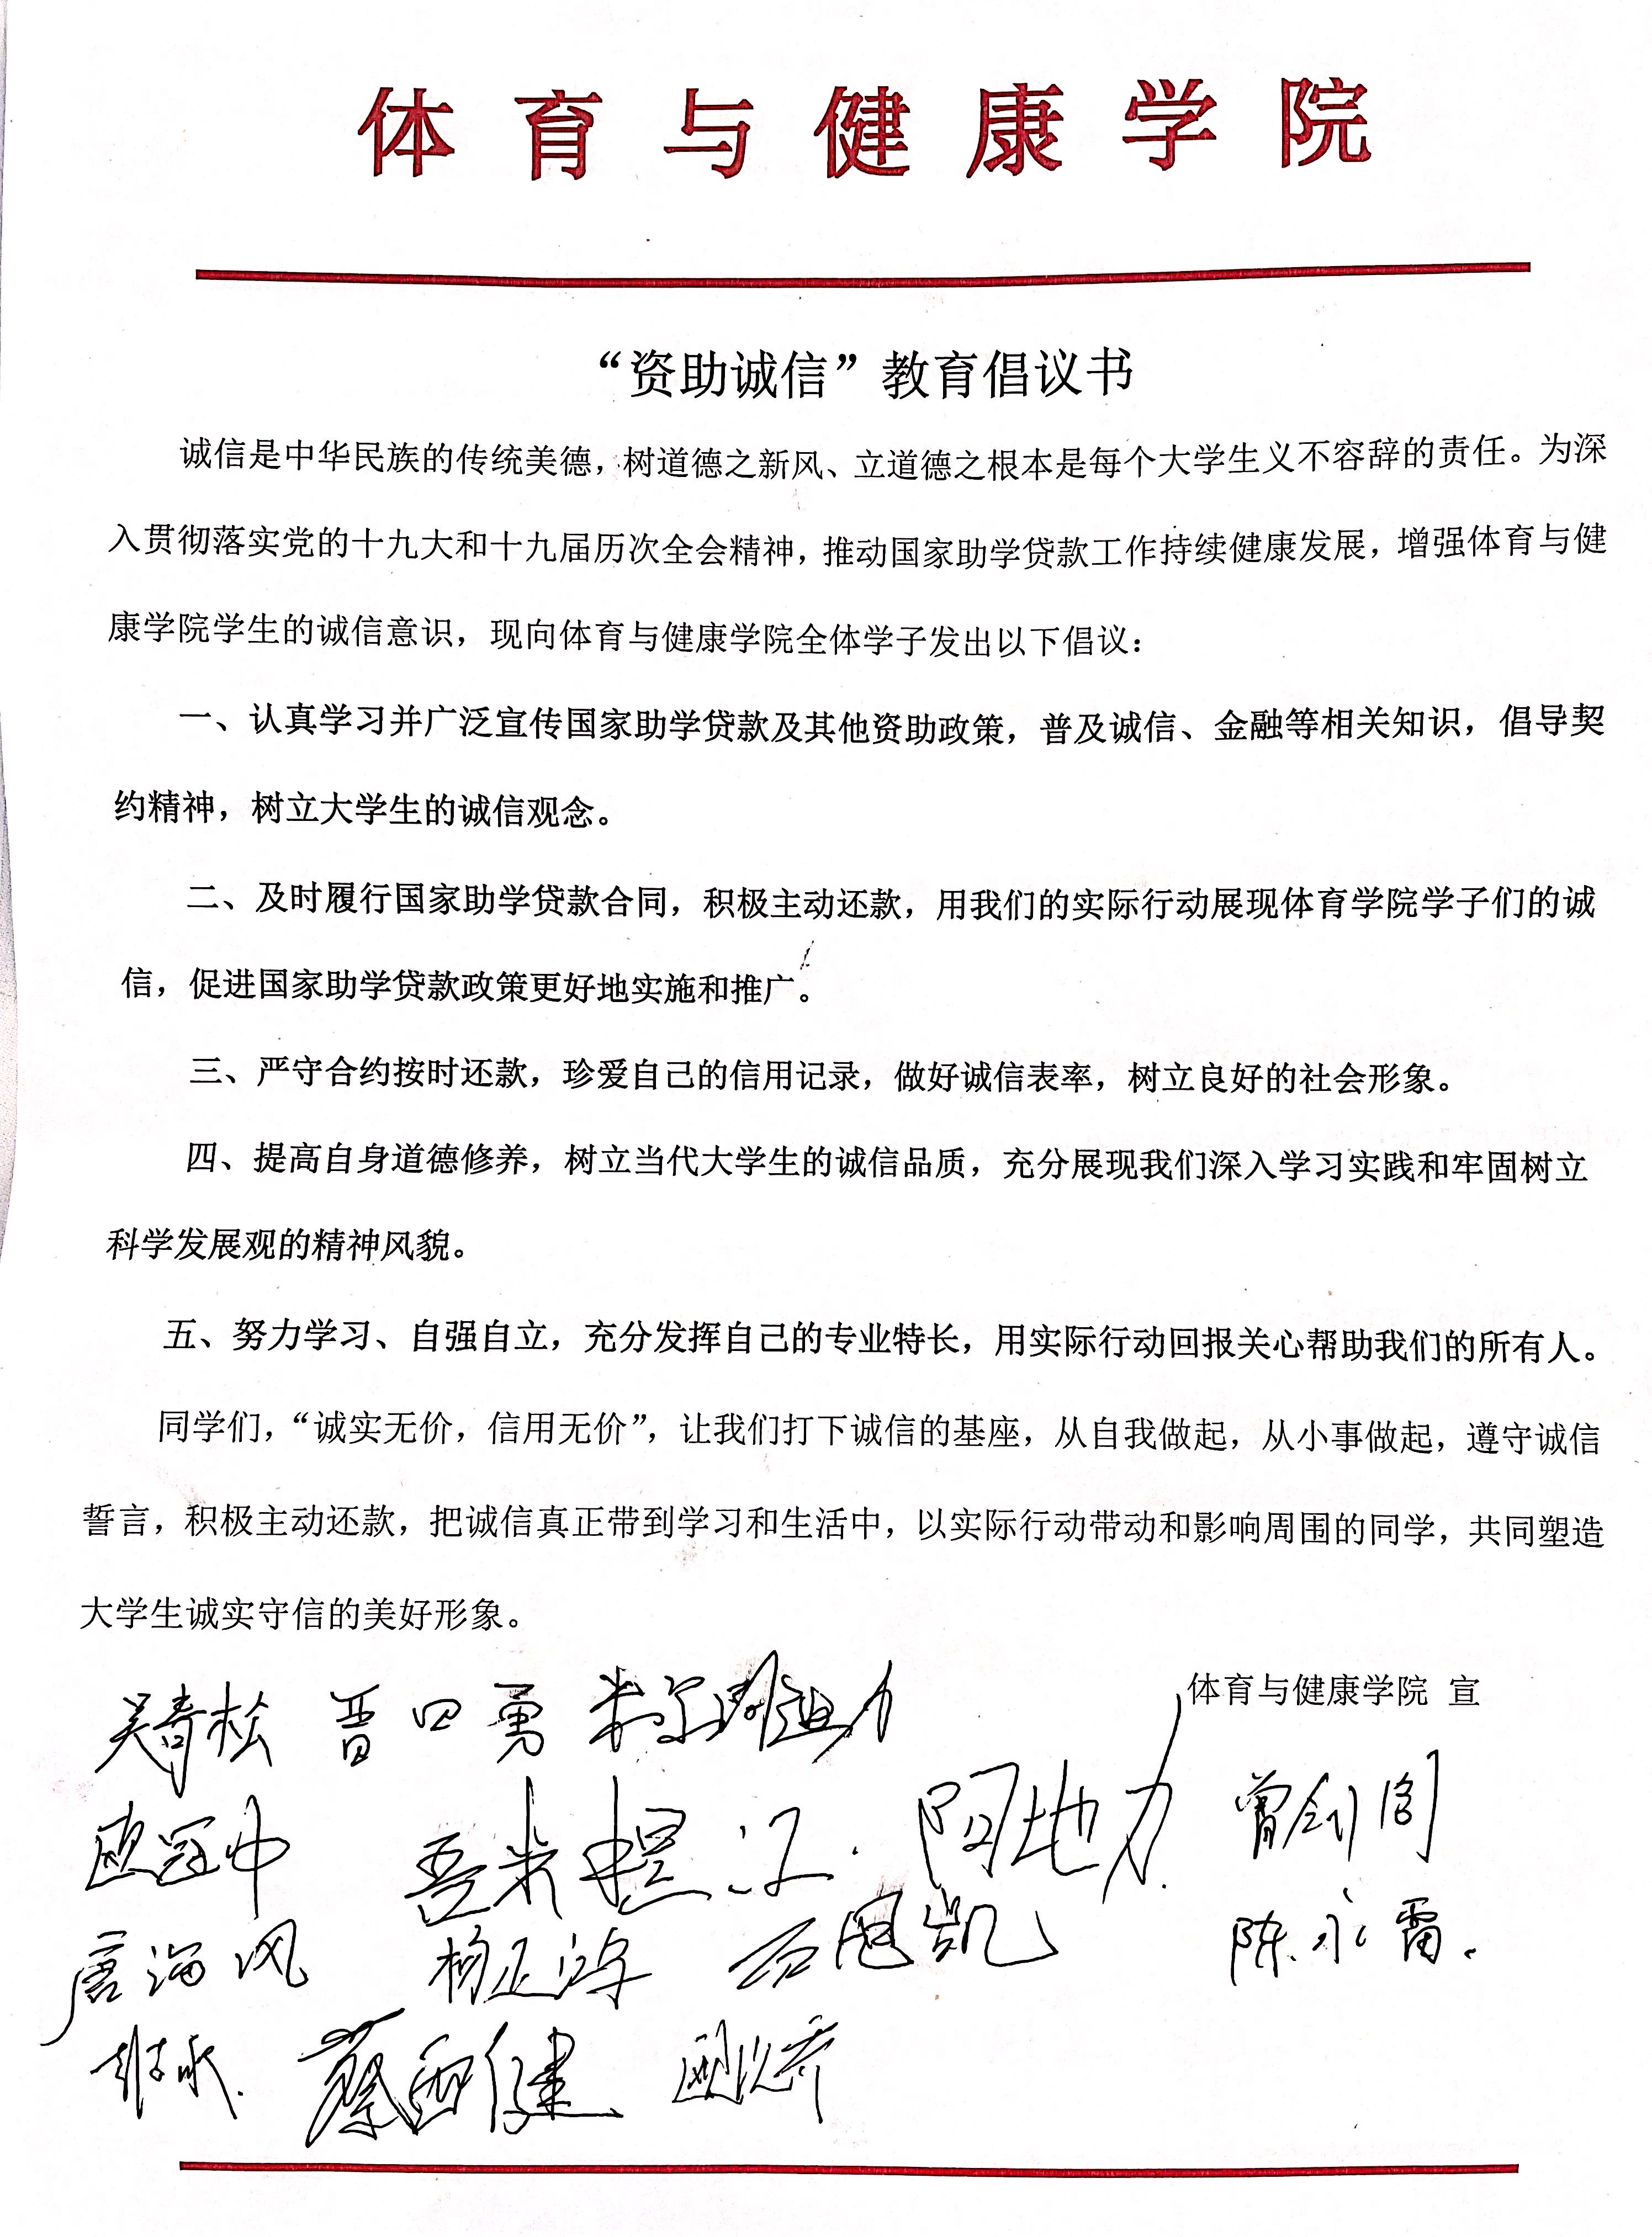 体育与健康学院
“资助诚信”教育倡议书
诚信是中华民族的传统美德，树道德之新风、立道德之根本是每个大学生义不容辞的责任。为深
入贯彻落实党的十九大和十九届历次全会精神，推动国家助学贷款工作持续健康发展，增强体育与健
康学院学生的诚信意识，现向体育与健康学院全体学子发出以下倡议：
一、认真学习并广泛宣传国家助学贷款及其他资助政策，普及诚信、金融等相关知识，倡导契
约精神，树立大学生的诚信观念。
二、及时履行国家助学贷款合同，积极主动还款，用我们的实际行动展现体育学院学子们的诚
信，促进国家助学贷款政策更好地实施和推广。
三、严守合约按时还款，珍爱自己的信用记录，做好诚信表率，树立良好的社会形象。
四、提高自身道德修养，树立当代大学生的诚信品质，充分展现我们深入学习实践和牢固树立
科学发展观的精神风貌。
五、努力学习、自强自立，充分发挥自己的专业特长，用实际行动回报关心帮助我们的所有人。
同学们，“诚实无价，信用无价”，让我们打下诚信的基座，从自我做起，从小事做起，遵守诚信
誓言，积极主动还款，把诚信真正带到学习和生活中，以实际行动带动和影响周围的同学，共同塑造
大学生诚实守信的美好形象。
体育与健康学院 宣
吴奇松 晋四勇
欧冠中 阿地力
唐海风 杨正鸿 陈永雷
蔡西健